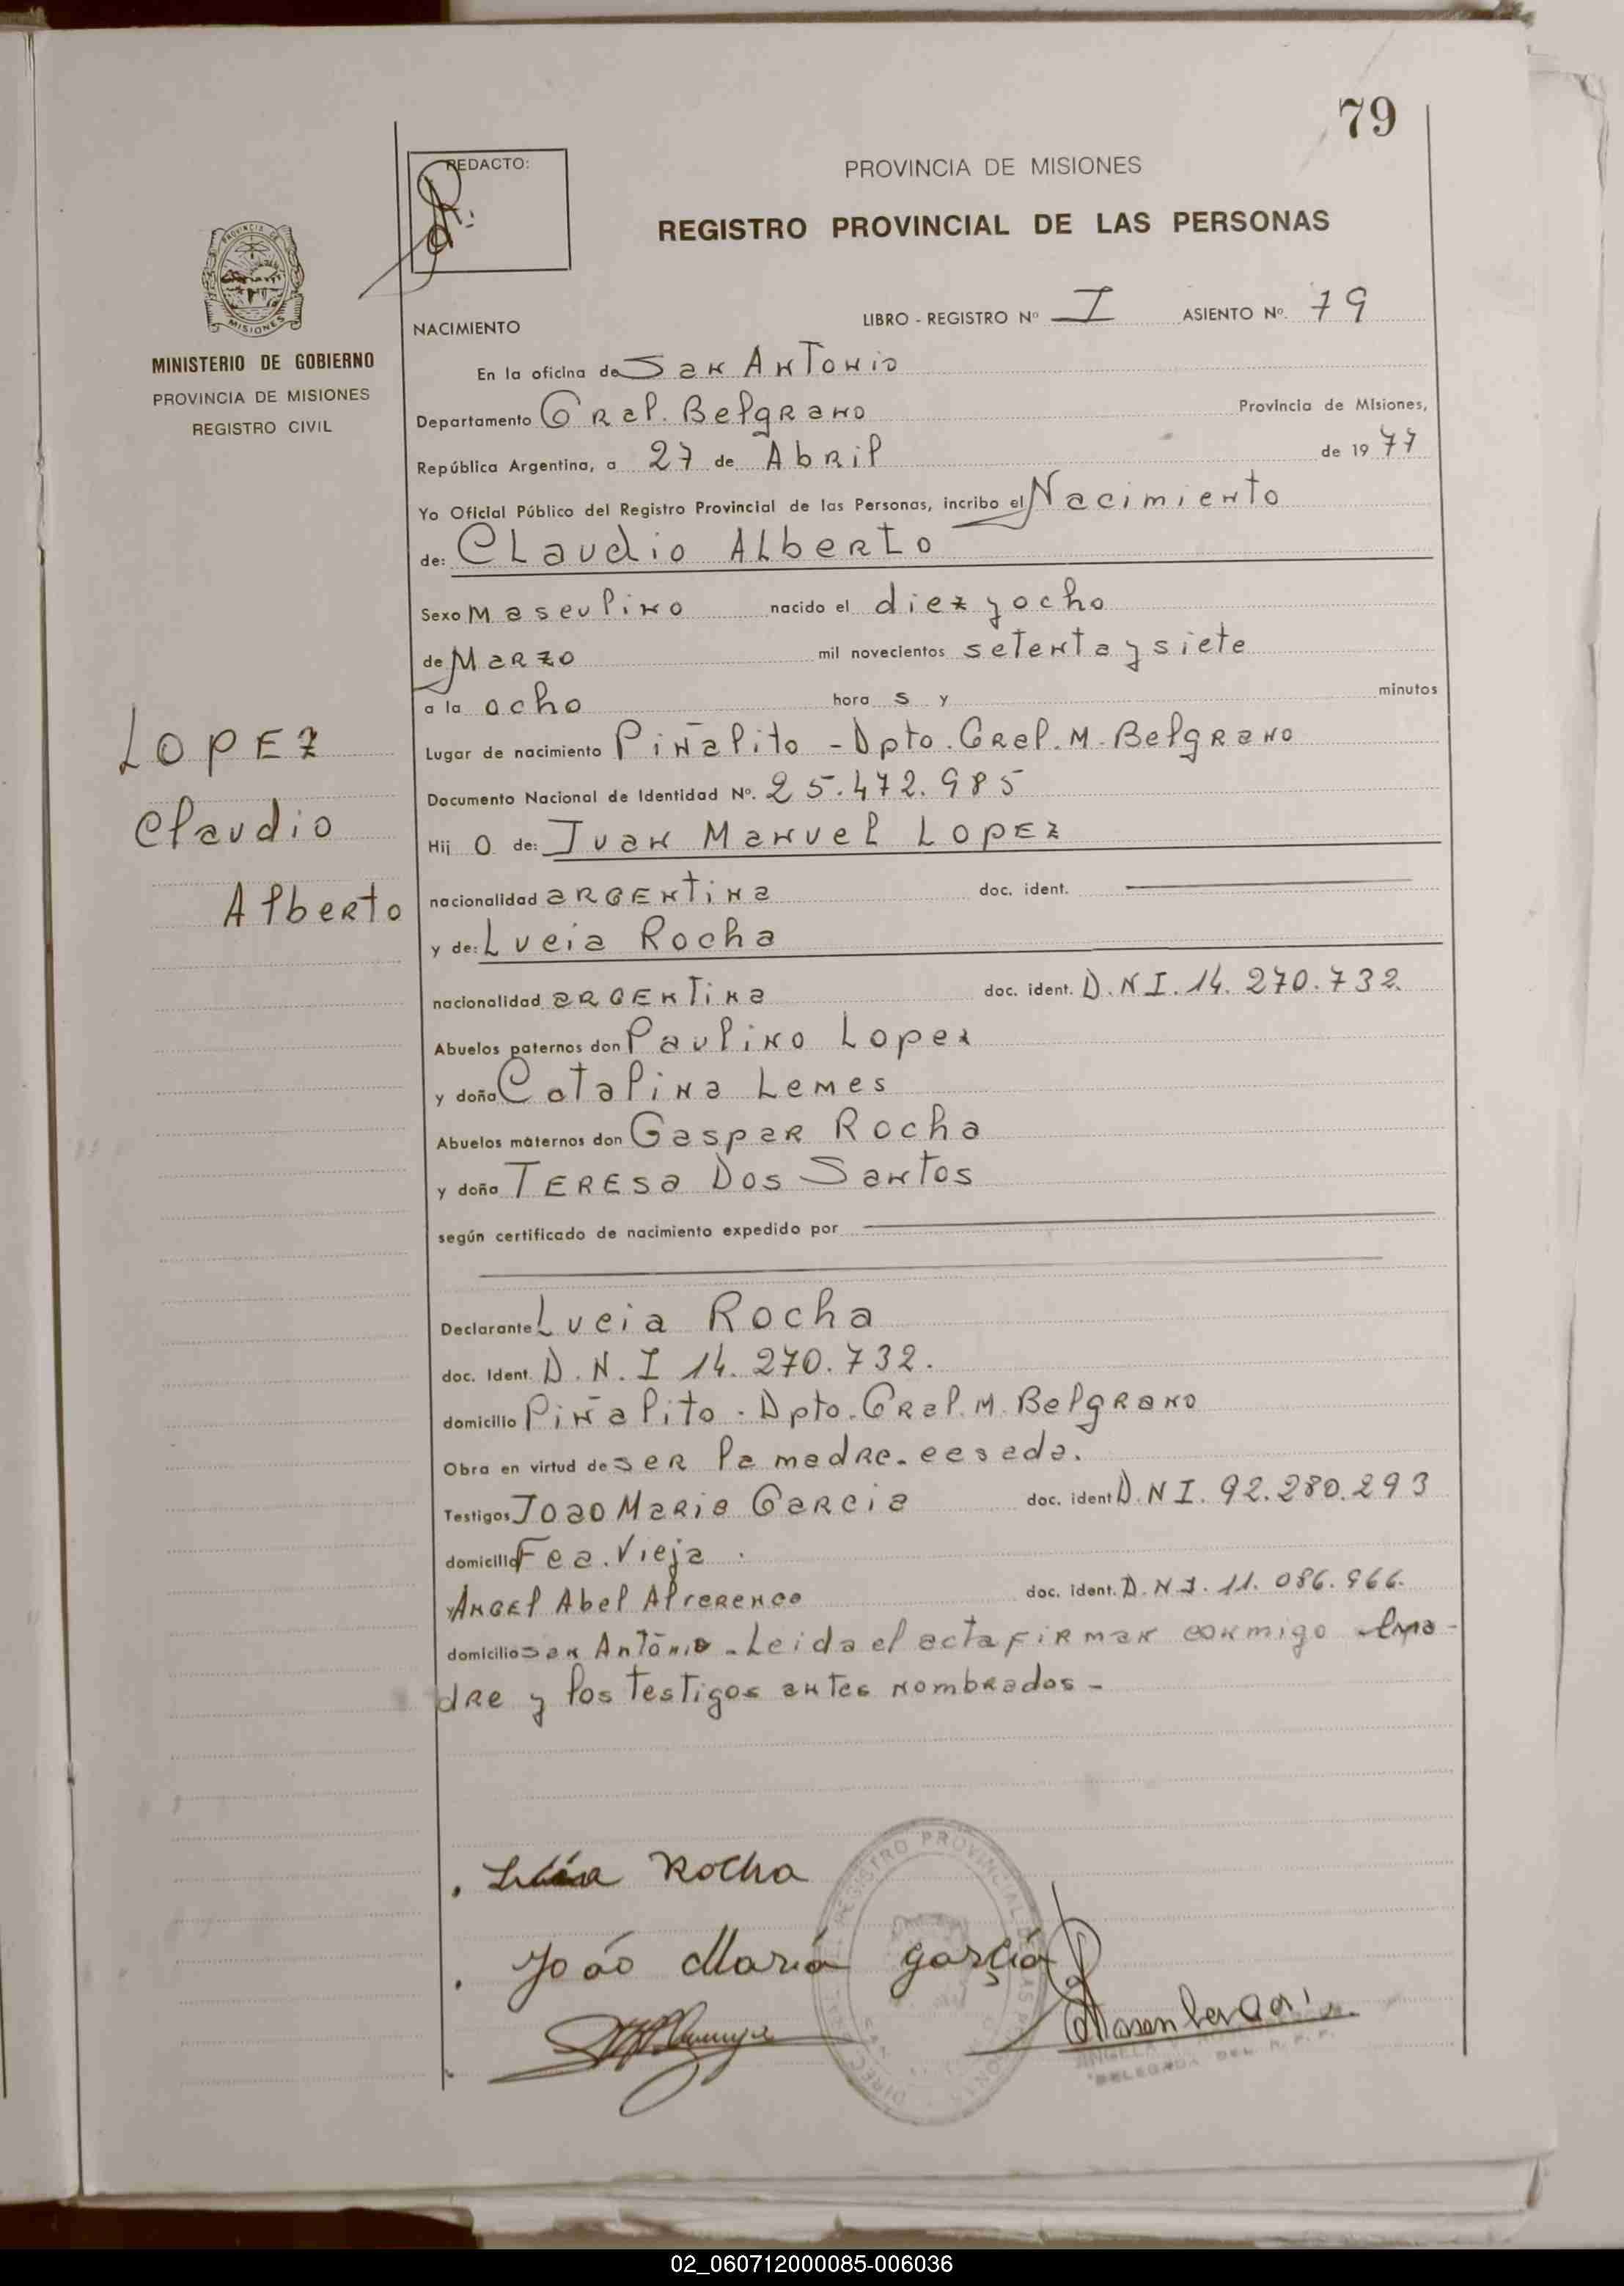 79
REDACTO:
PROVINCIA DE MISIONES
REGISTRO PROVINCIAL DE LAS PERSONAS
PROVINCIA DE
MISIONES
MINISTERIO DE GOBIERNO
PROVINCIA DE MISIONES
REGISTRO CIVIL
LOPEZ
Claudio
Alberto
NACIMIENTO
LIBRO - REGISTRO Nº I ASIENTO Nº. 79
En la oficina de San Antonio
Departamento Gral. Belgrano Provincia de Misiones,
República Argentina, a 27 de Abril de 1977
Yo Oficial Público del Registro Provincial de las Personas, incribo el Nacimiento
de: Claudio Alberto
Sexo masculino nacido el diez y ocho
de Marzo mil novecientos setenta y siete
a la ocho hora s y minutos
Lugar de nacimiento Piñalito - Dpto. Gral. M. Belgrano
Documento Nacional de Identidad Nº. 25.472.985
Hij o de: Juan Manuel Lopez
nacionalidad argentina doc. ident.
y de: Lucia Rocha
nacionalidad argentina doc. ident. D.N.I. 14.270.732.
Abuelos paternos don Paulino Lopez
y doña Catalina Lemes
Abuelos maternos don Gaspar Rocha
y doña Teresa Dos Santos
según certificado de nacimiento expedido por
Declarante Lucia Rocha
doc. Ident. D.N.I 14.270.732.
domicilio Piñalito . Dpto. Gral. M. Belgrano
Obra en virtud de ser la madre. casada.
Testigos Joao Maria Garcia doc. ident D.N I. 92.280.293
domicilio Fca. Vieja .
y Angel Abel doc. ident. D.N.I. 11.086.966.
domicilio San Antonio - Leida el acta firman conmigo la ma-
dre y los testigos antes nombrados -
. Lucia Rocha
. João María garçía
REGISTRO PROVINCIAL DE LAS PERSONAS
DELEGADA DEL R.P.P.
02_060712000085-006036